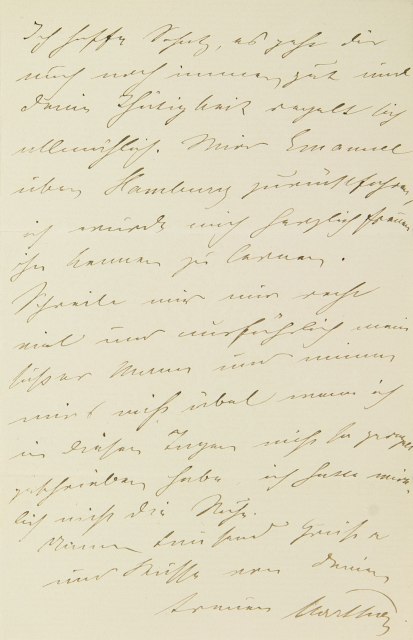 Ich hoffe Schatz, es geht dir
auch noch immer gut und
deine Thätigkeit regelt sich
allmählich. Wird Emanuel
über Hamburg zurückfahren,
ich würde mich herzlich freuen
ihn kennen zu lernen.
Schreibe mir nur recht
viel und ausführlich mein
süßer Mann und nimm
mir's nicht übel wenn ich
in diesen Tagen nicht so prompt
geschrieben habe, ich hatte wirk
lich nicht die Ruhe.
Nimm tausend Grüße
und Küsse von deiner
treuen Marthe